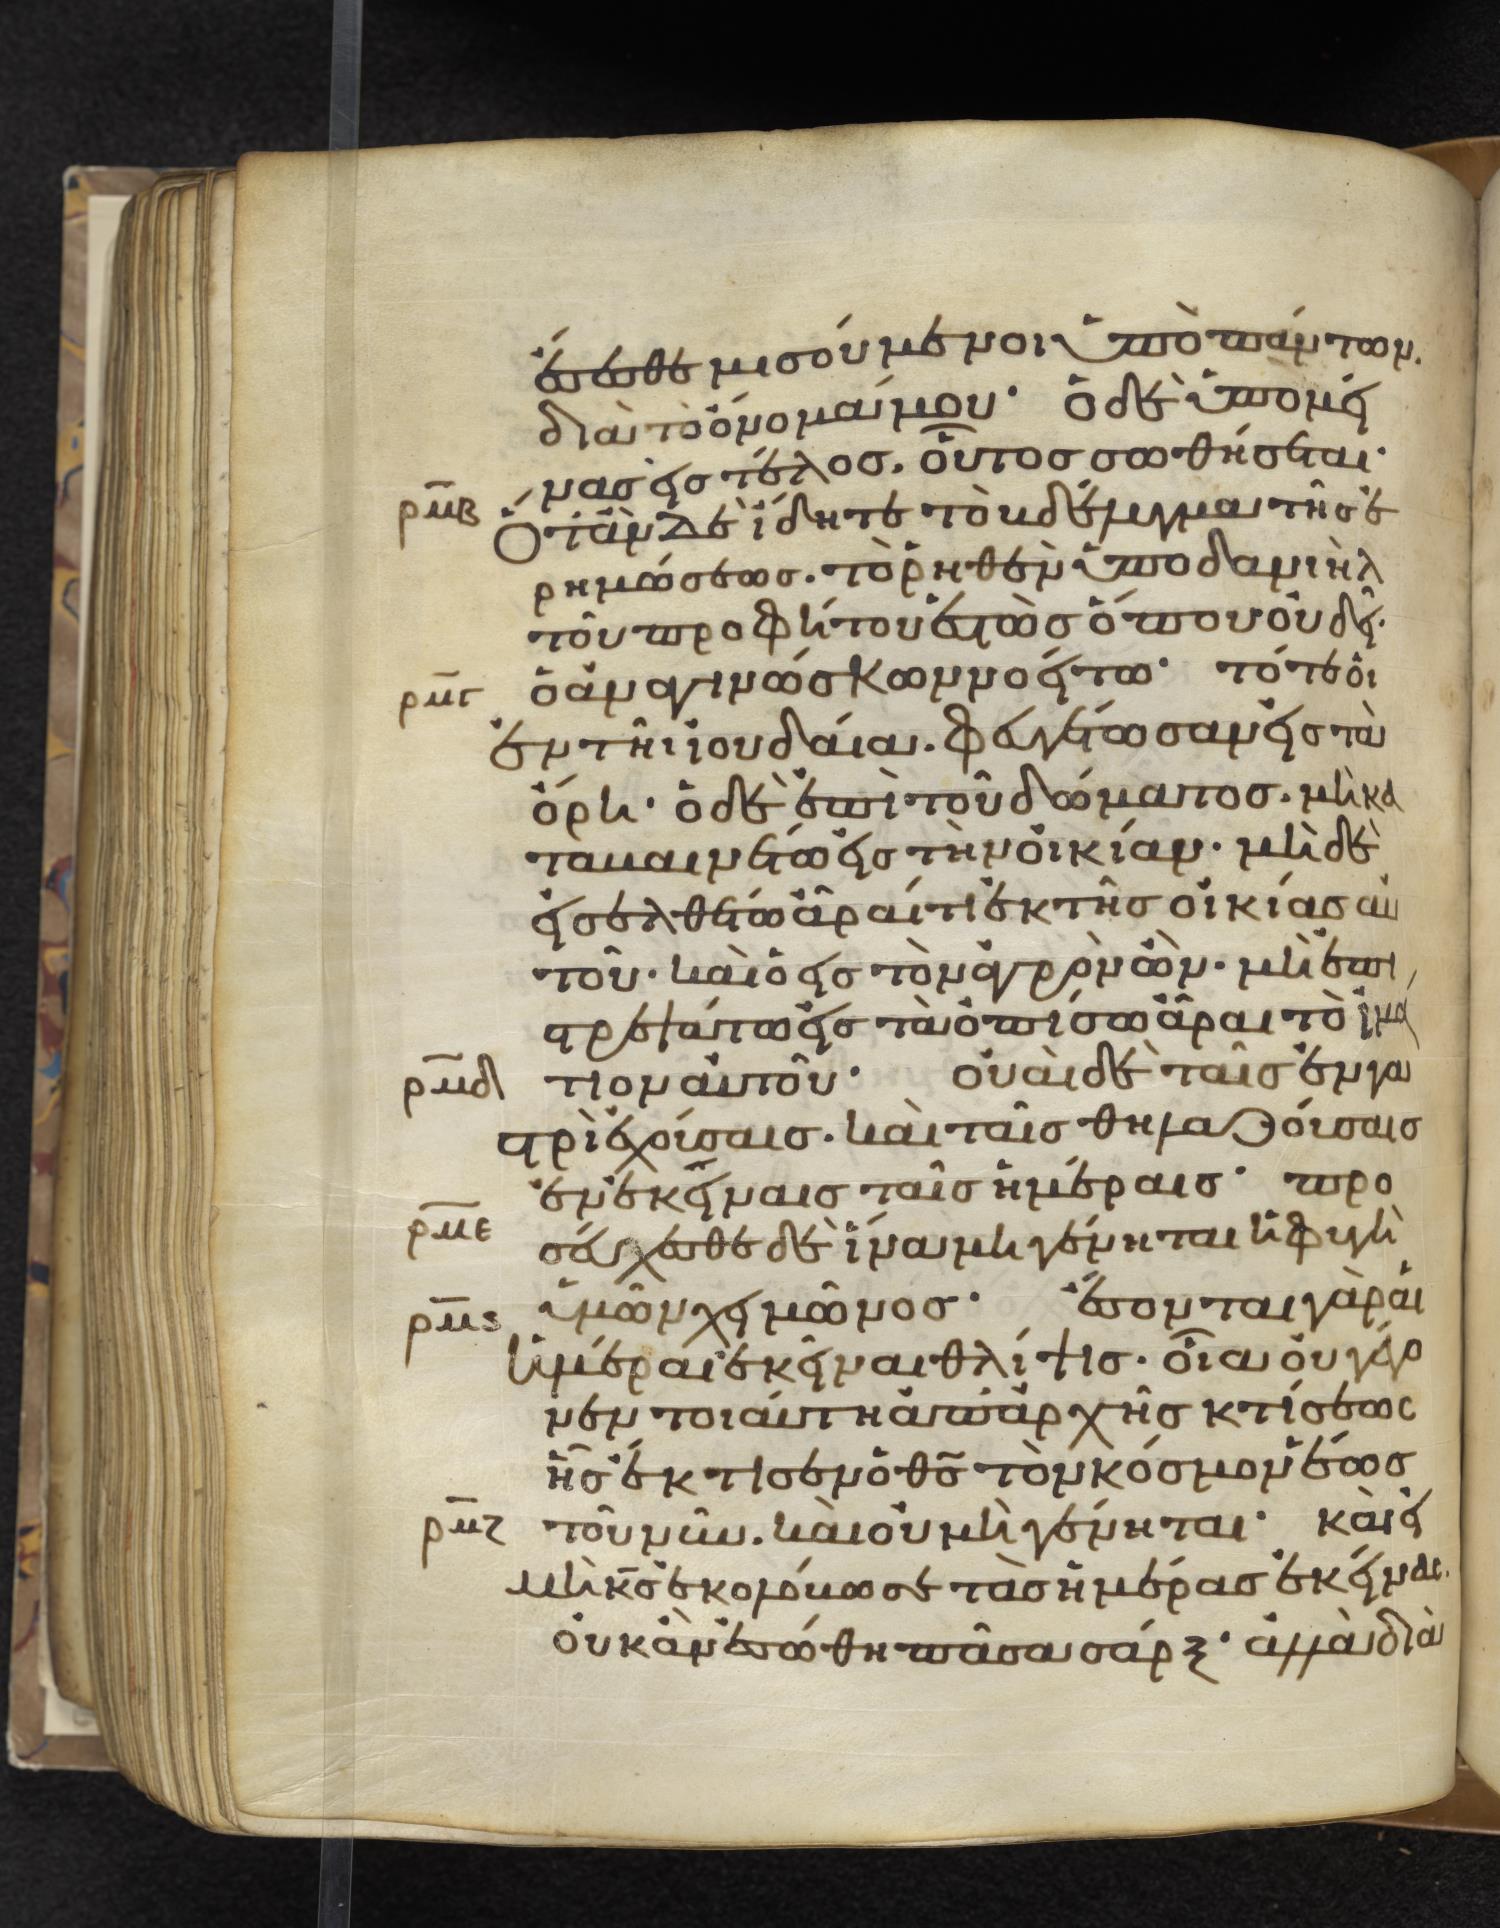 ἔσεσθε μισούμενοι ὑπὸ πάντων.
διὰ τὸ ὄνομά μου· ὁ δὲ ὑπομεί
νας εἰς τέλος. οὗτος σωθήσεται·
ρμβ Ὅταν δὲ ἴδητε τὸ βδέλυγμα τῆς ἐ
ρημώσεως. τὸ ῥηθὲν ὑπὸ δανιὴλ
τοῦ προφήτου ἑστὼς ὅπου οὐ δεῖ·
ρμγ ὁ ἀναγινώσκων νοείτω· τότε οἱ
ἐν τῆι ἰουδαία. φευγέτωσαν εἰς τὰ
ὄρη· ὁ δὲ ἐπὶ τοῦ δώματος. μὴ κα
ταβαινέτω εἰς τὴν οἰκίαν. μὴ δὲ
εἰσελθέτω ἆραί τι ἐκ τῆς οἰκίας αὐ
τοῦ. καὶ ὁ εἰς τὸν ἀγρὸν ὢν. μὴ ἐπι
στρεψάτω εἰς τὰ ὀπίσω ἆραι τὸ ἱμά
ρμδ τιον αὐτοῦ· οὐαὶ δὲ ταῖς ἐν γα
στρὶ ἐχούσαις. καὶ ταῖς θηλαζούσαις
ἐν ἐκείναις ταῖς ἡμέραις· προ
ρμε σεύχεσθε δὲ ἵνα μὴ γένηται ἡ φυγὴ
ρμς ὑμῶν χειμῶνος· ἔσονται γὰρ αἱ
ἡμέραι ἐκεῖναι θλίψις. οἵα οὐ γέγο
νεν τοιαύτη ἀπ' ἀρχῆς κτίσεως
ἧς ἔκτισεν ὁ θς τὸν κόσμον ἕως
ρμζ τοῦ νῦν. καὶ οὐ μὴ γένηται· καὶ εἰ
μὴ κς ἐκολόβωσε τὰς ἡμέρας ἐκείνας.
οὐκ ἂν ἐσώθη πᾶσα σάρξ· ἀλλὰ διὰ